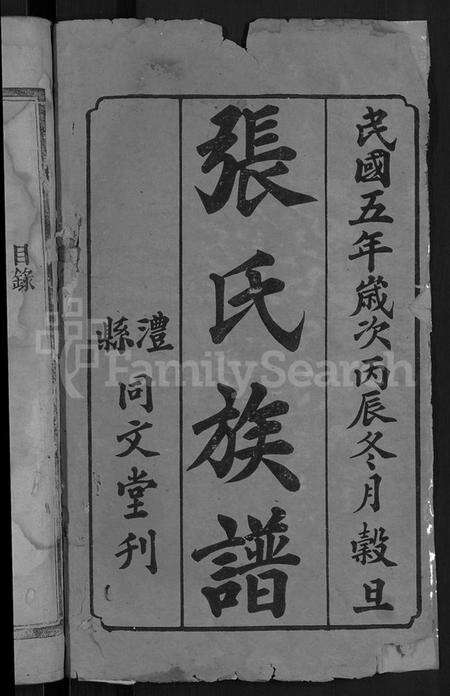 民國五年歲次丙辰冬月穀旦
張氏族譜
澧縣同文堂刊
目錄
FamilySearch